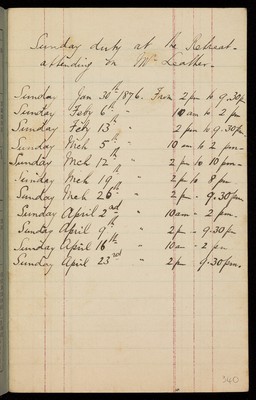 Sunday duty at the Retreat -
attending on Mr Leather -
Sunday Jan 30th 1876. From 2 pm to 9.30 p
Sunday Feby 6th " 10 am to 2 pm
Sunday Feby 13th " 2 pm to 9.30 pm
Sunday Mch 5th " 10 am to 2 pm -
Sunday Mch 12th " 2 pm to 10 pm -
Sunday Mch 19th " 2 pm to 8 pm
Sunday Mch 26th " 2 pm - 9.30 pm
Sunday April 2nd " 10 am - 2 pm.
Sunday April 9th " 2 pm - 9.30 pm
Sunday April 16th " 10 a - 2 pm
Sunday April 23rd " 2 pm 9.30 pm.
340